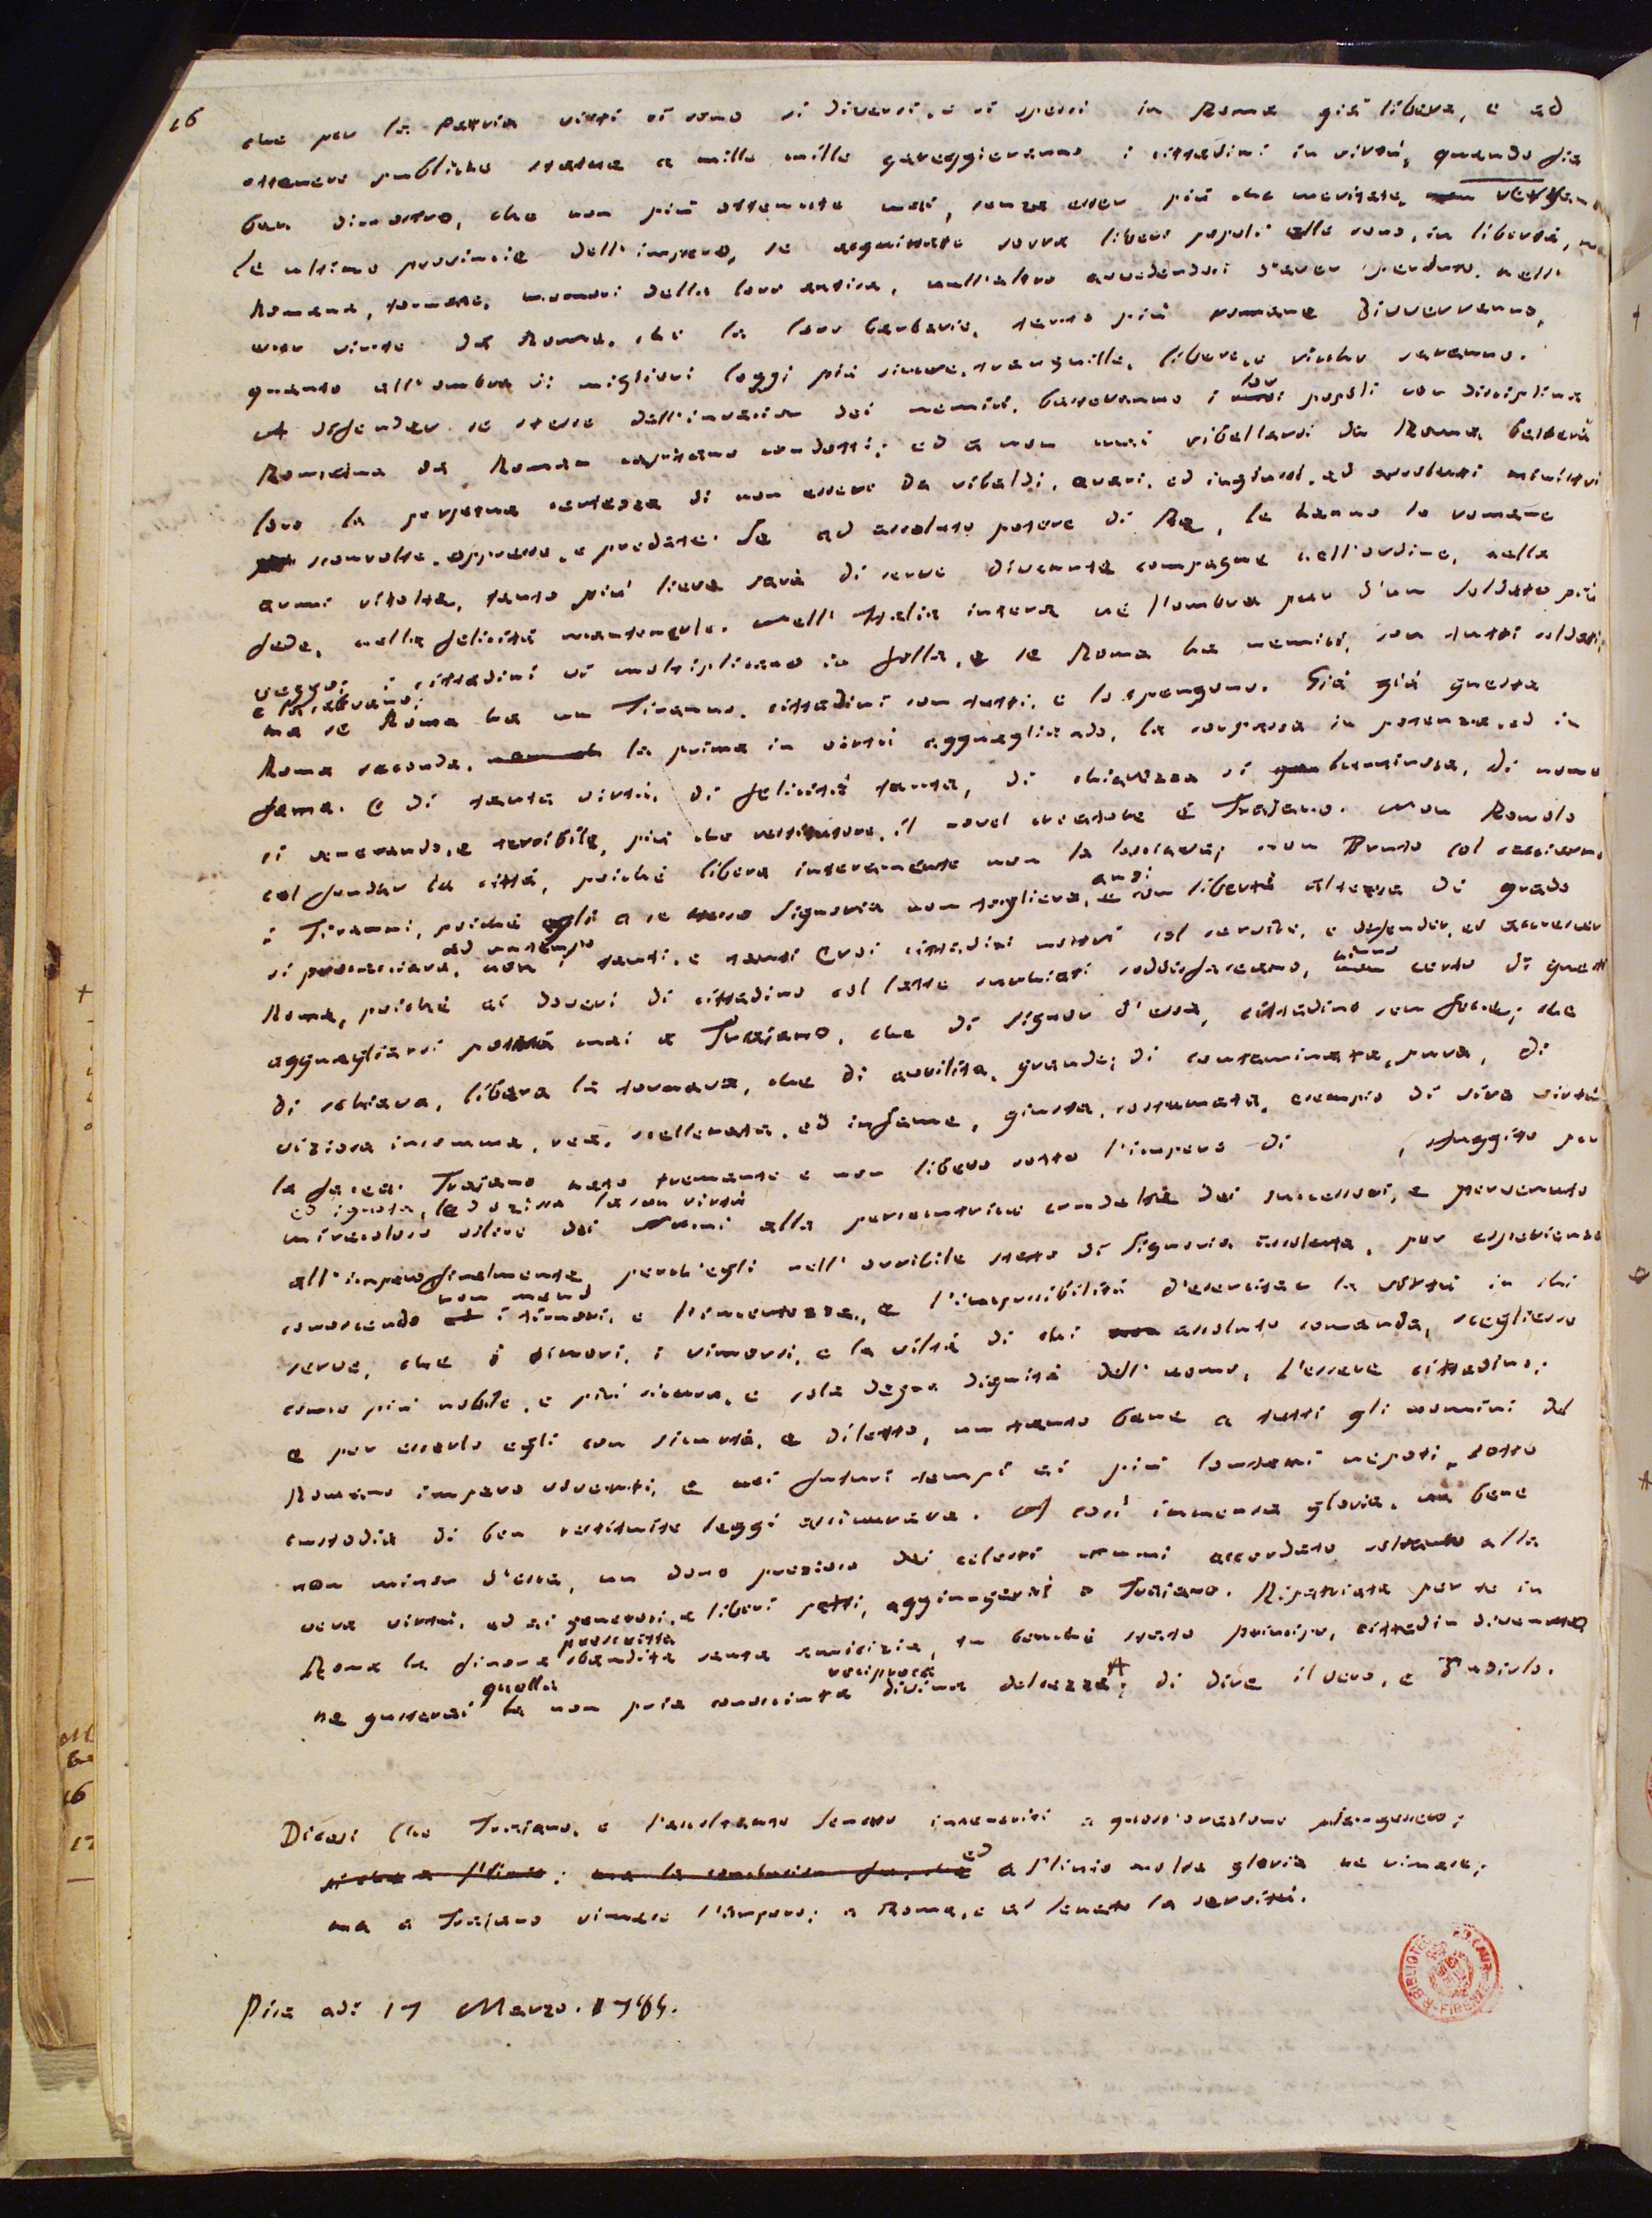 16
che per la patria vitti vi sono sì diversi, e sì spessi in Roma già libera, e ad
ottenere publiche statue a mille mille gareggieranno i cittadini in virtù, quando fia
ben dimostro, che non più ottenute mai, senza esser più che meritate,
le ultime provincie dell'impero, se acquistate sovra liberi popoli elle sono, in libertà, ma
Romana, tornate, memori della loro antica, null'altro avvedendosi d'aver perduto nell'
esser vinte da Roma, che la loro barbarie, tanto più romane diverranno,
quanto all'ombra di migliori leggi più sicure, tranquille, libere, e ricche saranno.
A difender se stesse dall'invasion dei nemici, basteranno i lor popoli con disciplina
Romana da Roman capitano condotti; ed a non mai ribellarsi da Roma basterà
loro la perpetua certezza di non essere da ribaldi, avari, ed ingiusti, ed assoluti ministri
sconvolte, oppresse, e predate. Se ad assoluto potere di Re, le hanno le romane
armi ritolte, tanto più lieve sarà di serve divenute compagne nell'ordine, nella
fede, nella felicità mantenerle. Nell'Italia intera nè l'ombra pur d'un soldato più
veggo; i cittadini si moltiplicano in folla, e se Roma ha nemici, son tutti soldati,
e la salvano;
ma se Roma ha un Tiranno, cittadini son tutti, e lo spengono. Già già questa
Roma seconda, la prima in virtù agguagliando, la sorpassa in potenza, ed in
fama. E di tanta virtù, di felicità tanta, di chiarezza sì luminosa, di nome
sì venerando, e terribile, più che restitutore, il novel creatore è Trajano. Non Romolo
col fondar la città, poichè libera interamente non la lasciava; non Bruto col cacciarne
i Tiranni, poichè egli a se stesso Signoria non toglieva, anzi con libertà altezza di grado
si procacciava, ad un tempo non i tanti, e tanti Eroi cittadini nostri col servire, e difender, ed accrescer
Roma, poichè ai doveri di cittadino col latte succhiati soddisfaceano, niuno certo di questi
agguagliarsi potrà mai a Trajano, che di signor d'essa, cittadino sen fece; che
di schiava, libera la tornava, che di avvilita, grande; di contaminata, pura, di
viziosa insomma, rea, scellerata, ed infame, giusta, costumata, esempio di viva virtù
la facea. Trajano nato tremante e non libero sotto l'impero di , sfuggito per
ed ignota, ed oziosa la sua virtù
miracoloso volere dei Numi alla persecutrice crudeltà dei successori, e pervenuto
all'impero finalmente, perch'egli nell'orribile stato di Signoria assoluta, per esperienza
conoscendo non meno i timori, e l'incertezza, e l'impossibilità d'esercitar la virtù in chi
serve, che i timori, i rimorsi, e la viltà di chi assoluto comanda, scegliesse
come più nobile, e più sicura, e sola degna dignità dell'uomo, l'essere cittadino;
e per esserlo egli con sicurtà, e diletto, un tanto bene a tutti gli uomini del
Romano impero viventi, e nei futuri tempi ai più lontani nepoti, sotto
custodia di ben restituite leggi assicurava. A così immensa gloria, un bene
non minor d'essa, un dono prezioso dei celesti Numi accordato soltanto alla
vera virtù, ed ai generosi, e liberi petti, aggiungerai o Trajano. Ripatriata per te in
Roma la finora proscritta sbandita santa amicizia, tu benchè stato principe, cittadin divenuto
ne gusterai quella non pria conosciuta reciproca divina dolcezza; di dire il vero, e d'udirlo.
Dicesi che Trajano, e l'ascoltante Senato inteneriti a quest'orazione piangessero;
ed a Plinio molta gloria ne rimase;
ma a Trajano rimase l'impero; a Roma, e al Senato la servitù.
Pisa adì 17 Marzo. 1785.